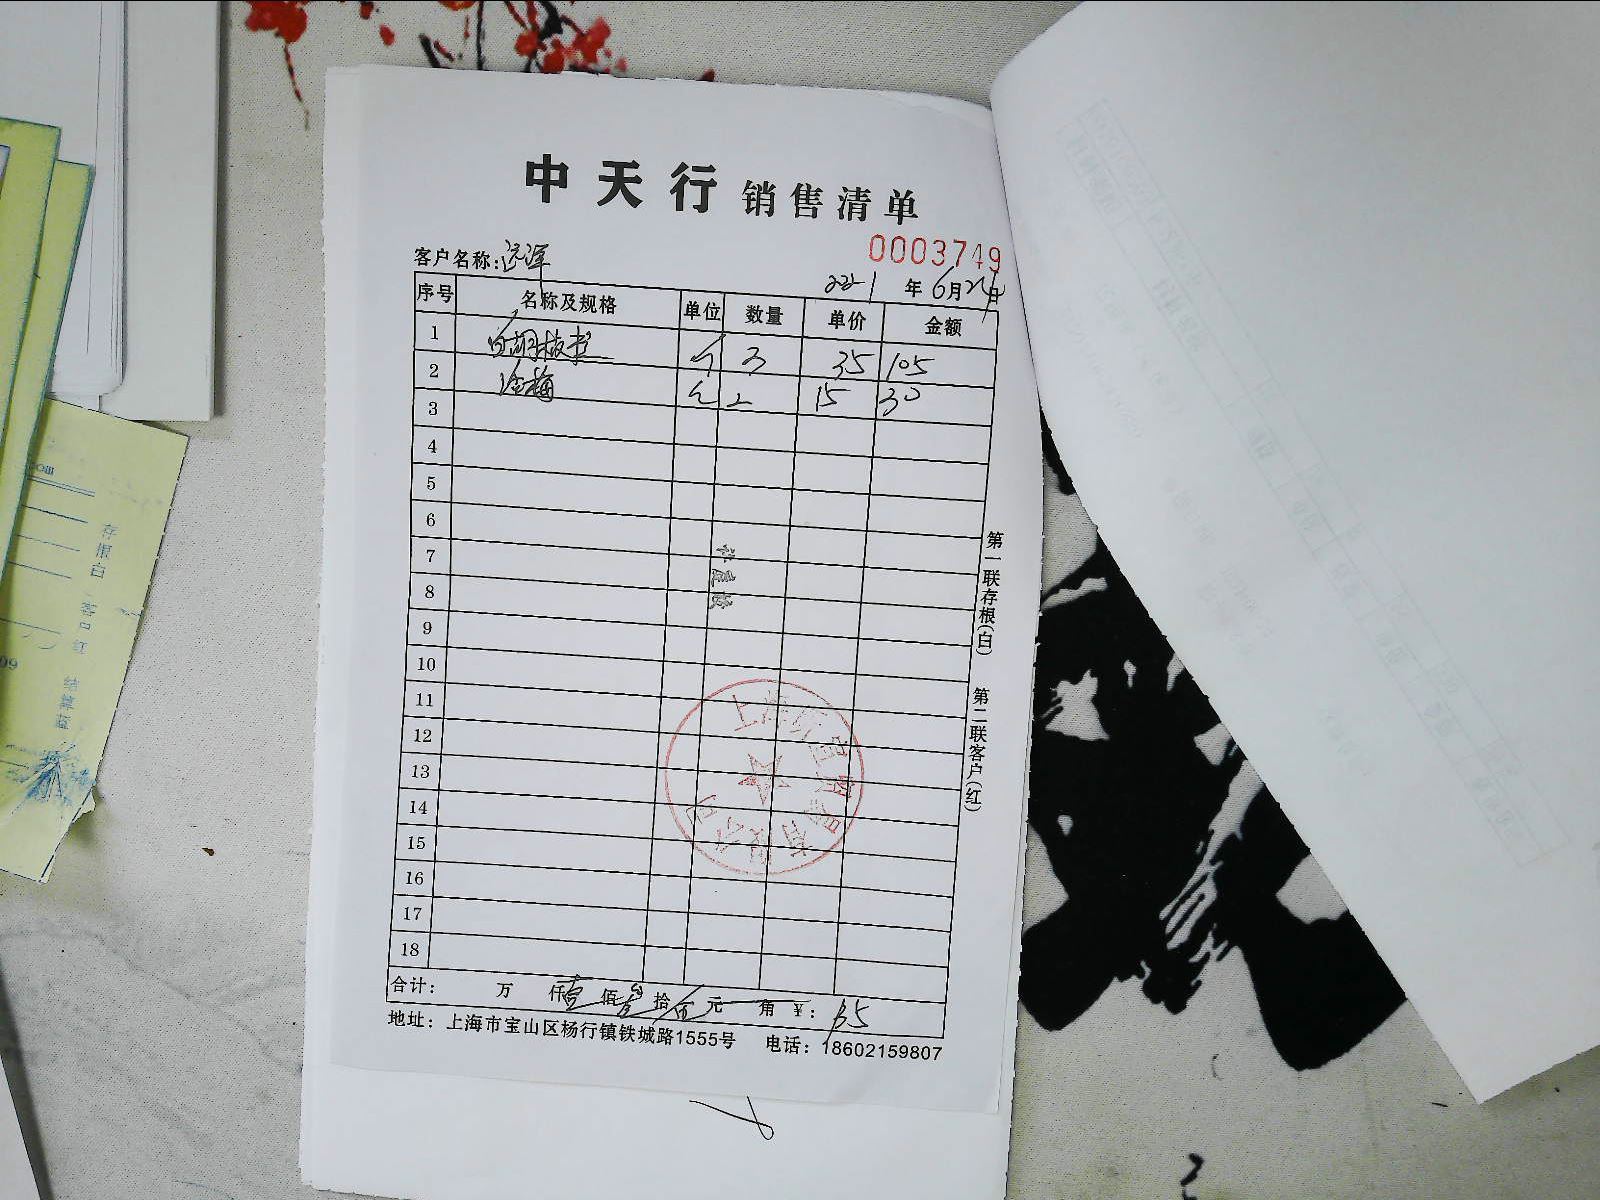 中天行 销售清单
0003749
客户名称:
年 6月 日
序号 名称及规格 单位 数量 单价 金额
1 个 3 35 105
2 15 30
3
4
5
6
7
8
9
10
11
12
13
14
15
16
17
18
合计: 万 仟壹 佰叁 拾 伍 元 角 ¥: 135
地址: 上海市宝山区杨行镇铁城路1555号 电话: 18602159807
第一联存根(白) 第二联客户(红)
上海 有限公司
存根白
客户红
结算蓝